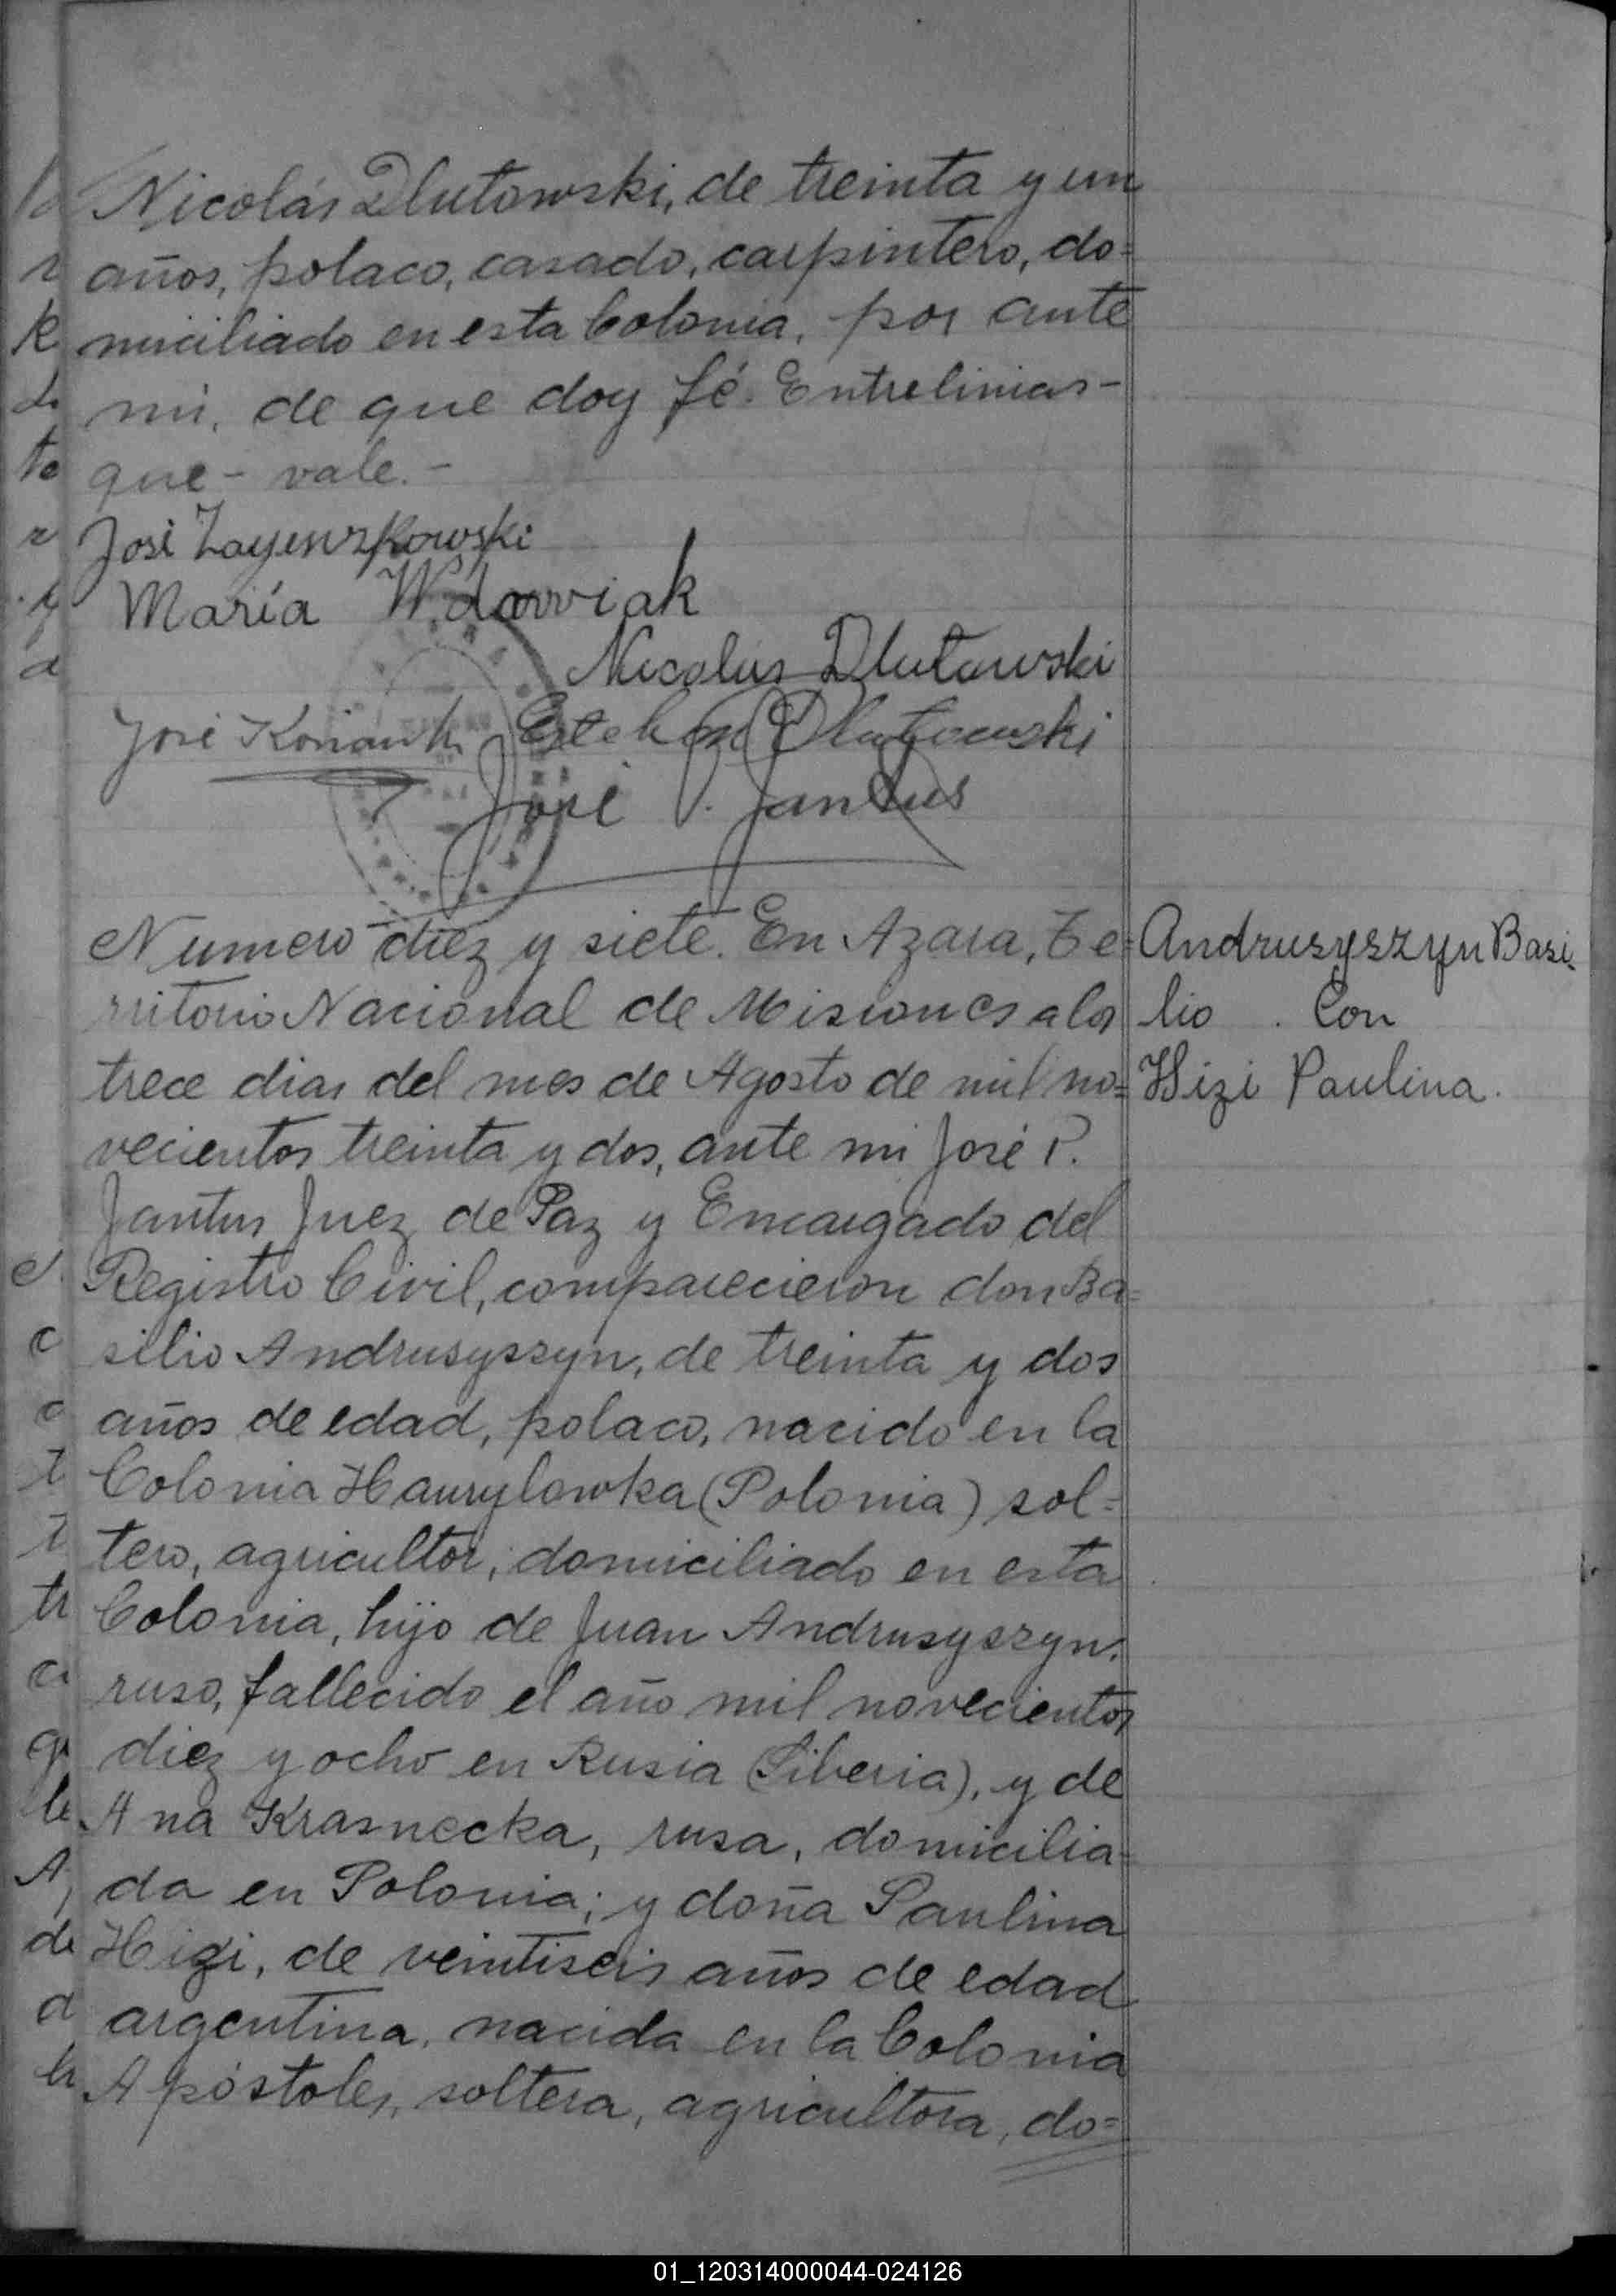 Nicolás Dlutowski, de treinta y un
años, polaco, casado, carpintero, do=
miciliado en esta Colonia, por ante
mi, de que doy fé. Entrelinias-
que- vale.-
José Zayenzkowski
María Wdowiak
Nicolas Dlutowski
José Esteban Dlutowski
José P. Jantus
Numero diez y siete. En Azara, Te=
rritorio Nacional de Misiones a los
trece dias del mes de Agosto de mil no=
vecientos treinta y dos, ante mi José P.
Jantus Juez de Paz y Encargado del
Registro Civil, comparecieron don Ba=
silio Andrusyszyn, de treinta y dos
años de edad, polaco, nacido en la
Colonia Hawrylowka (Polonia) sol=
tero, agricultor, domiciliado en esta
Colonia, hijo de Juan Andrusyszyn.
ruso, fallecido el año mil novecientos
diez y ocho en Rusia (Siberia), y de
Ana Krasnecka, rusa, domicilia=
da en Polonia; y doña Paulina
Hizi, de veintiseis años de edad
argentina, nacida en la Colonia
Apóstoles, soltera, agricultora, do=
Andrusyszyn Basi-
lio . Con
Hizi Paulina.
01_120314000044-024126